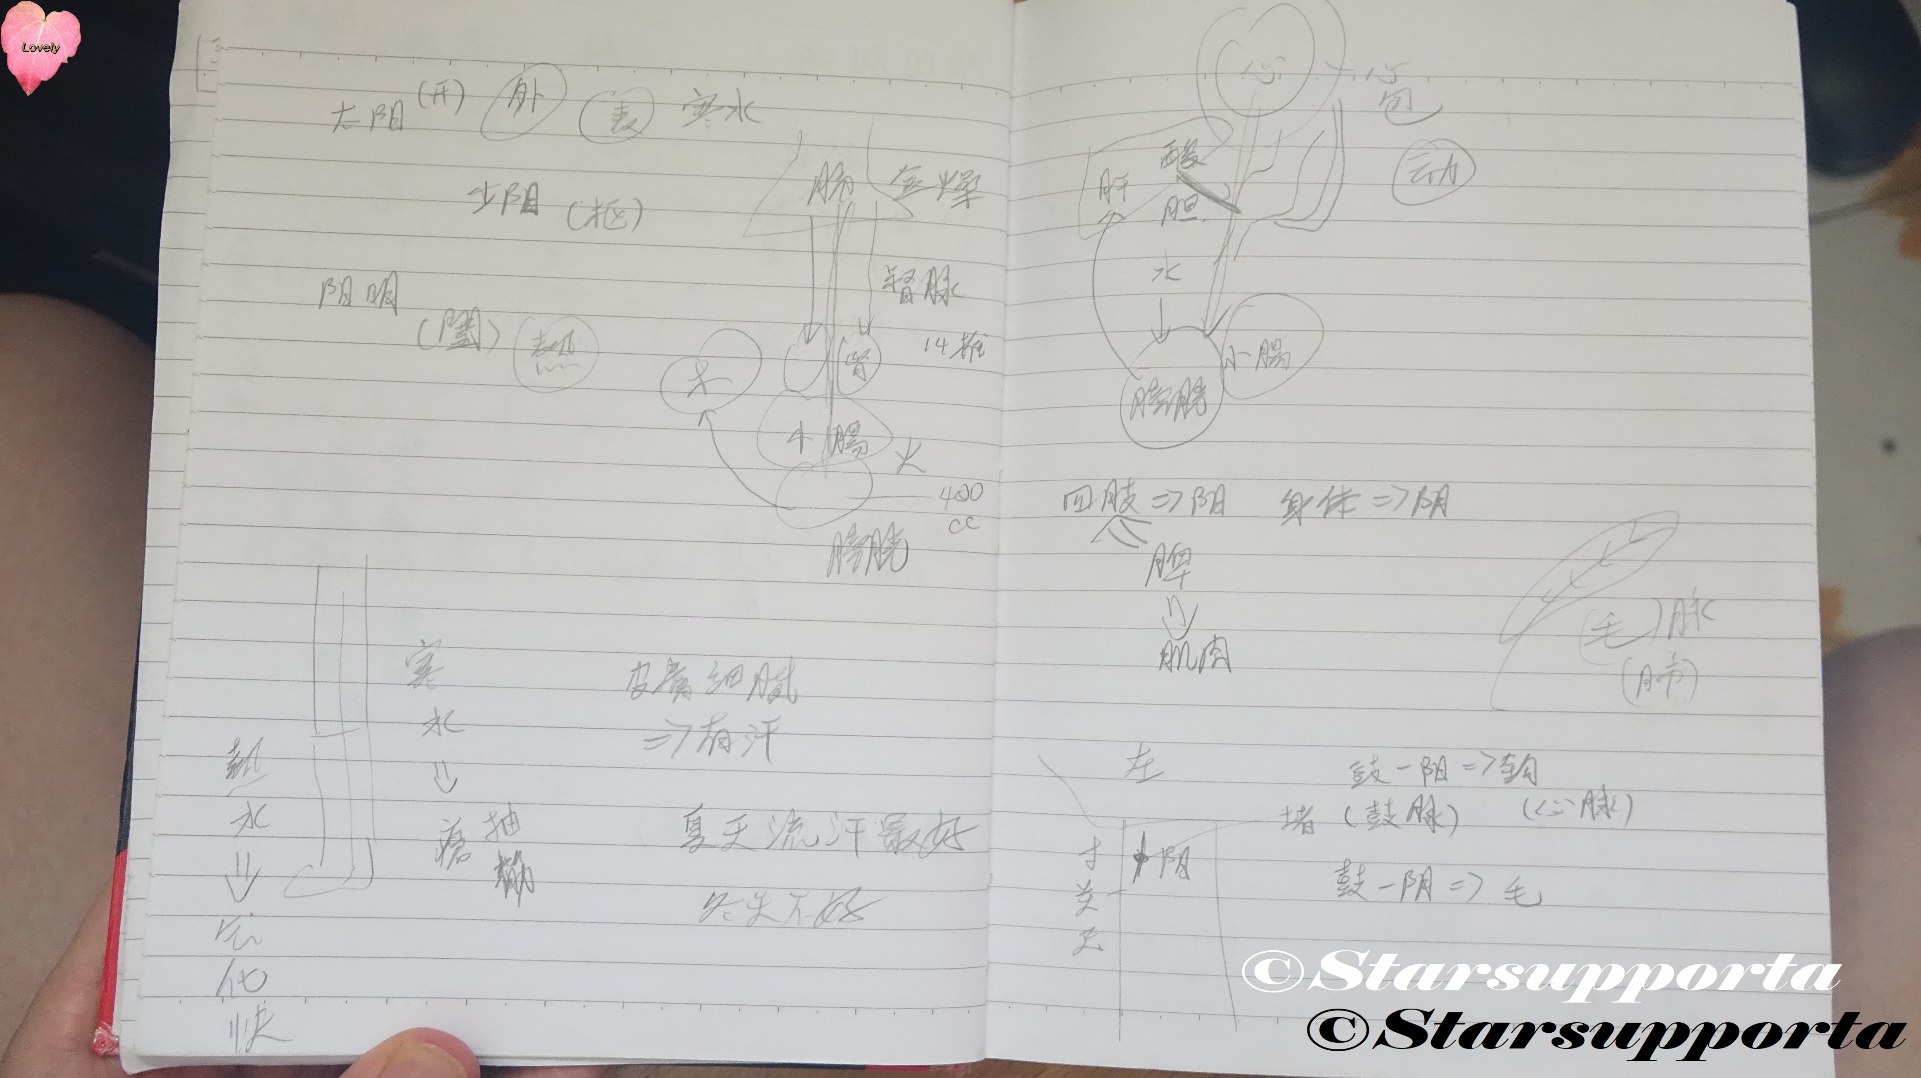 Lovely
太阳(开) 外 表 寒水
少阳(枢)
肺 金燥
阳明
(闔) 熱
督脉
14椎
木
腎
小腸 火
400
cc
膀胱
寒
水
熱
水
皮膚细胞
=>有汗
抽
筋
夏天流汗最好
冬天不好
气
化
快
心
心
包
动
酸
肝
胆
水
小腸
膀胱
四肢=>阴 身体=>阴
脾
肌肉
(毛)脉
(肺)
左
鼓一阳=>鈎
堵(鼓脉) (心脉)
寸 阴
关
尺
鼓一阴=>毛
©Starsupporta
©Starsupporta